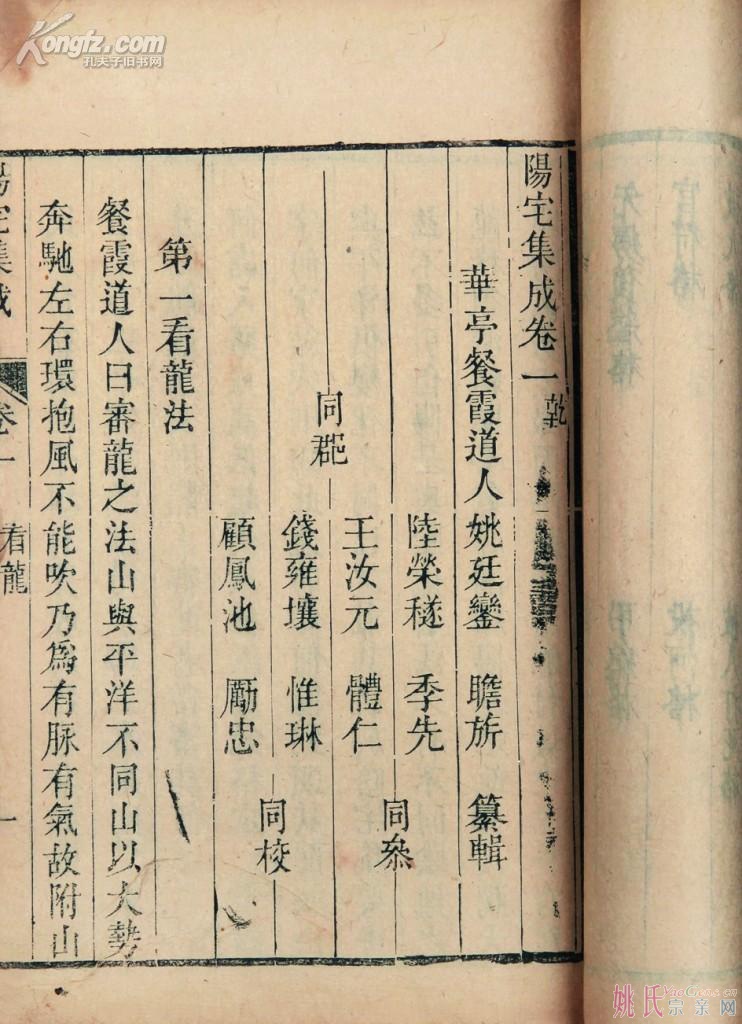 Kongfz.com
孔夫子旧书网
陽宅集成卷一 乾
華亭餐霞道人姚廷鑾瞻旂纂輯
陸榮穟季先
王汝元體仁
同參
同郡
錢雍壤惟琳
顧鳳池勵忠
同校
第一看龍法
餐霞道人曰審龍之法山與平洋不同山以大勢
奔馳左右環抱風不能吹乃為有脉有氣故附山
陽宅集成
卷一
看龍
一
姚氏宗亲网
YaoGens.cn